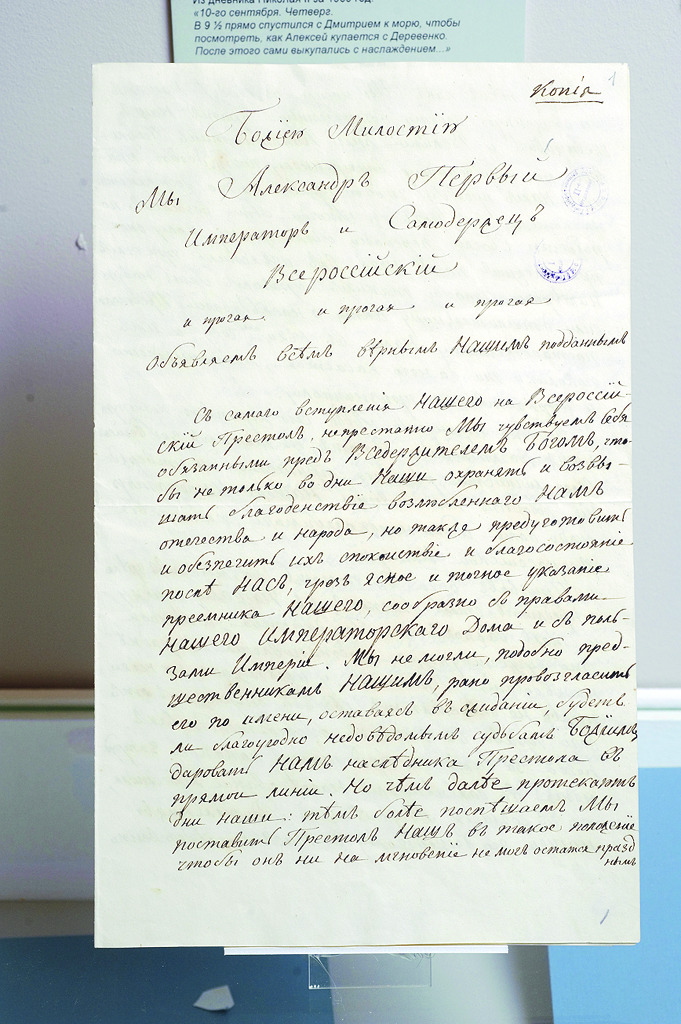 «10-го сентября. Четверг.
В 9 ½ прямо спустился с Дмитрием к морю, чтобы
посмотреть, как Алексей купается с Деревенко.
После этого сами выкупались с наслаждением...»
Копія
1
Божіею Милостію
Мы Александръ Первый
Императоръ и Самодержецъ
Всероссійскій
и прочая и прочая и прочая
Объявляемъ всѣмъ вѣрнымъ Нашимъ подданнымъ
Съ самаго вступленія Нашего на Всероссій-
скій Престолъ, непрестанно Мы чувствуемъ Себя
обязанными предъ Вседержителемъ Богомъ, что-
бы не только во дни Наши охранять и возвы-
шать благоденствіе возлюбленнаго Намъ
отечества и народа, но также предуготовить
и обезпечить ихъ спокойствіе и благосостояніе
послѣ Насъ, чрезъ ясное и точное указаніе
преемника Нашего, сообразно съ правами
Нашего Императорскаго Дома и съ поль-
зами Имперіи. Мы не могли, подобно пред-
шественникамъ Нашимъ, рано провозгласить
его по имени, оставаясь въ ожиданіи, будетъ
ли благоугодно недовѣдомымъ судьбамъ Божіимъ
даровать Намъ наслѣдника Престола въ
прямой линіи. Но чѣмъ далѣе протекаютъ
дни наши: тѣмъ болѣе поспѣшаемъ Мы
поставить Престолъ Нашъ въ такое положеніе
чтобы онъ ни на мгновеніе не могъ остатся празд
нымъ